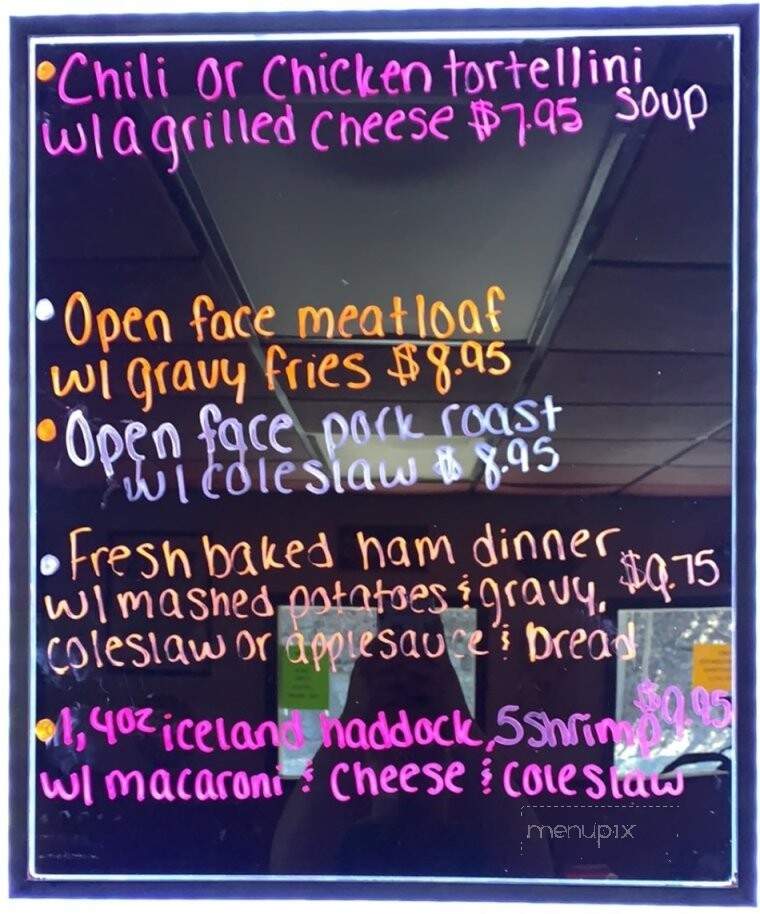 • Chili or Chicken tortellini
w/ a grilled cheese $7.95 soup
• Open face meatloaf
w/ gravy fries $8.95
• Open face pork roast
w/ coleslaw $8.95
• Fresh baked ham dinner
w/ mashed potatoes & gravy, $9.75
coleslaw or applesauce & bread
• 1, 4oz iceland haddock, 5 shrimp $9.95
w/ macaroni & cheese & coleslaw
menupix